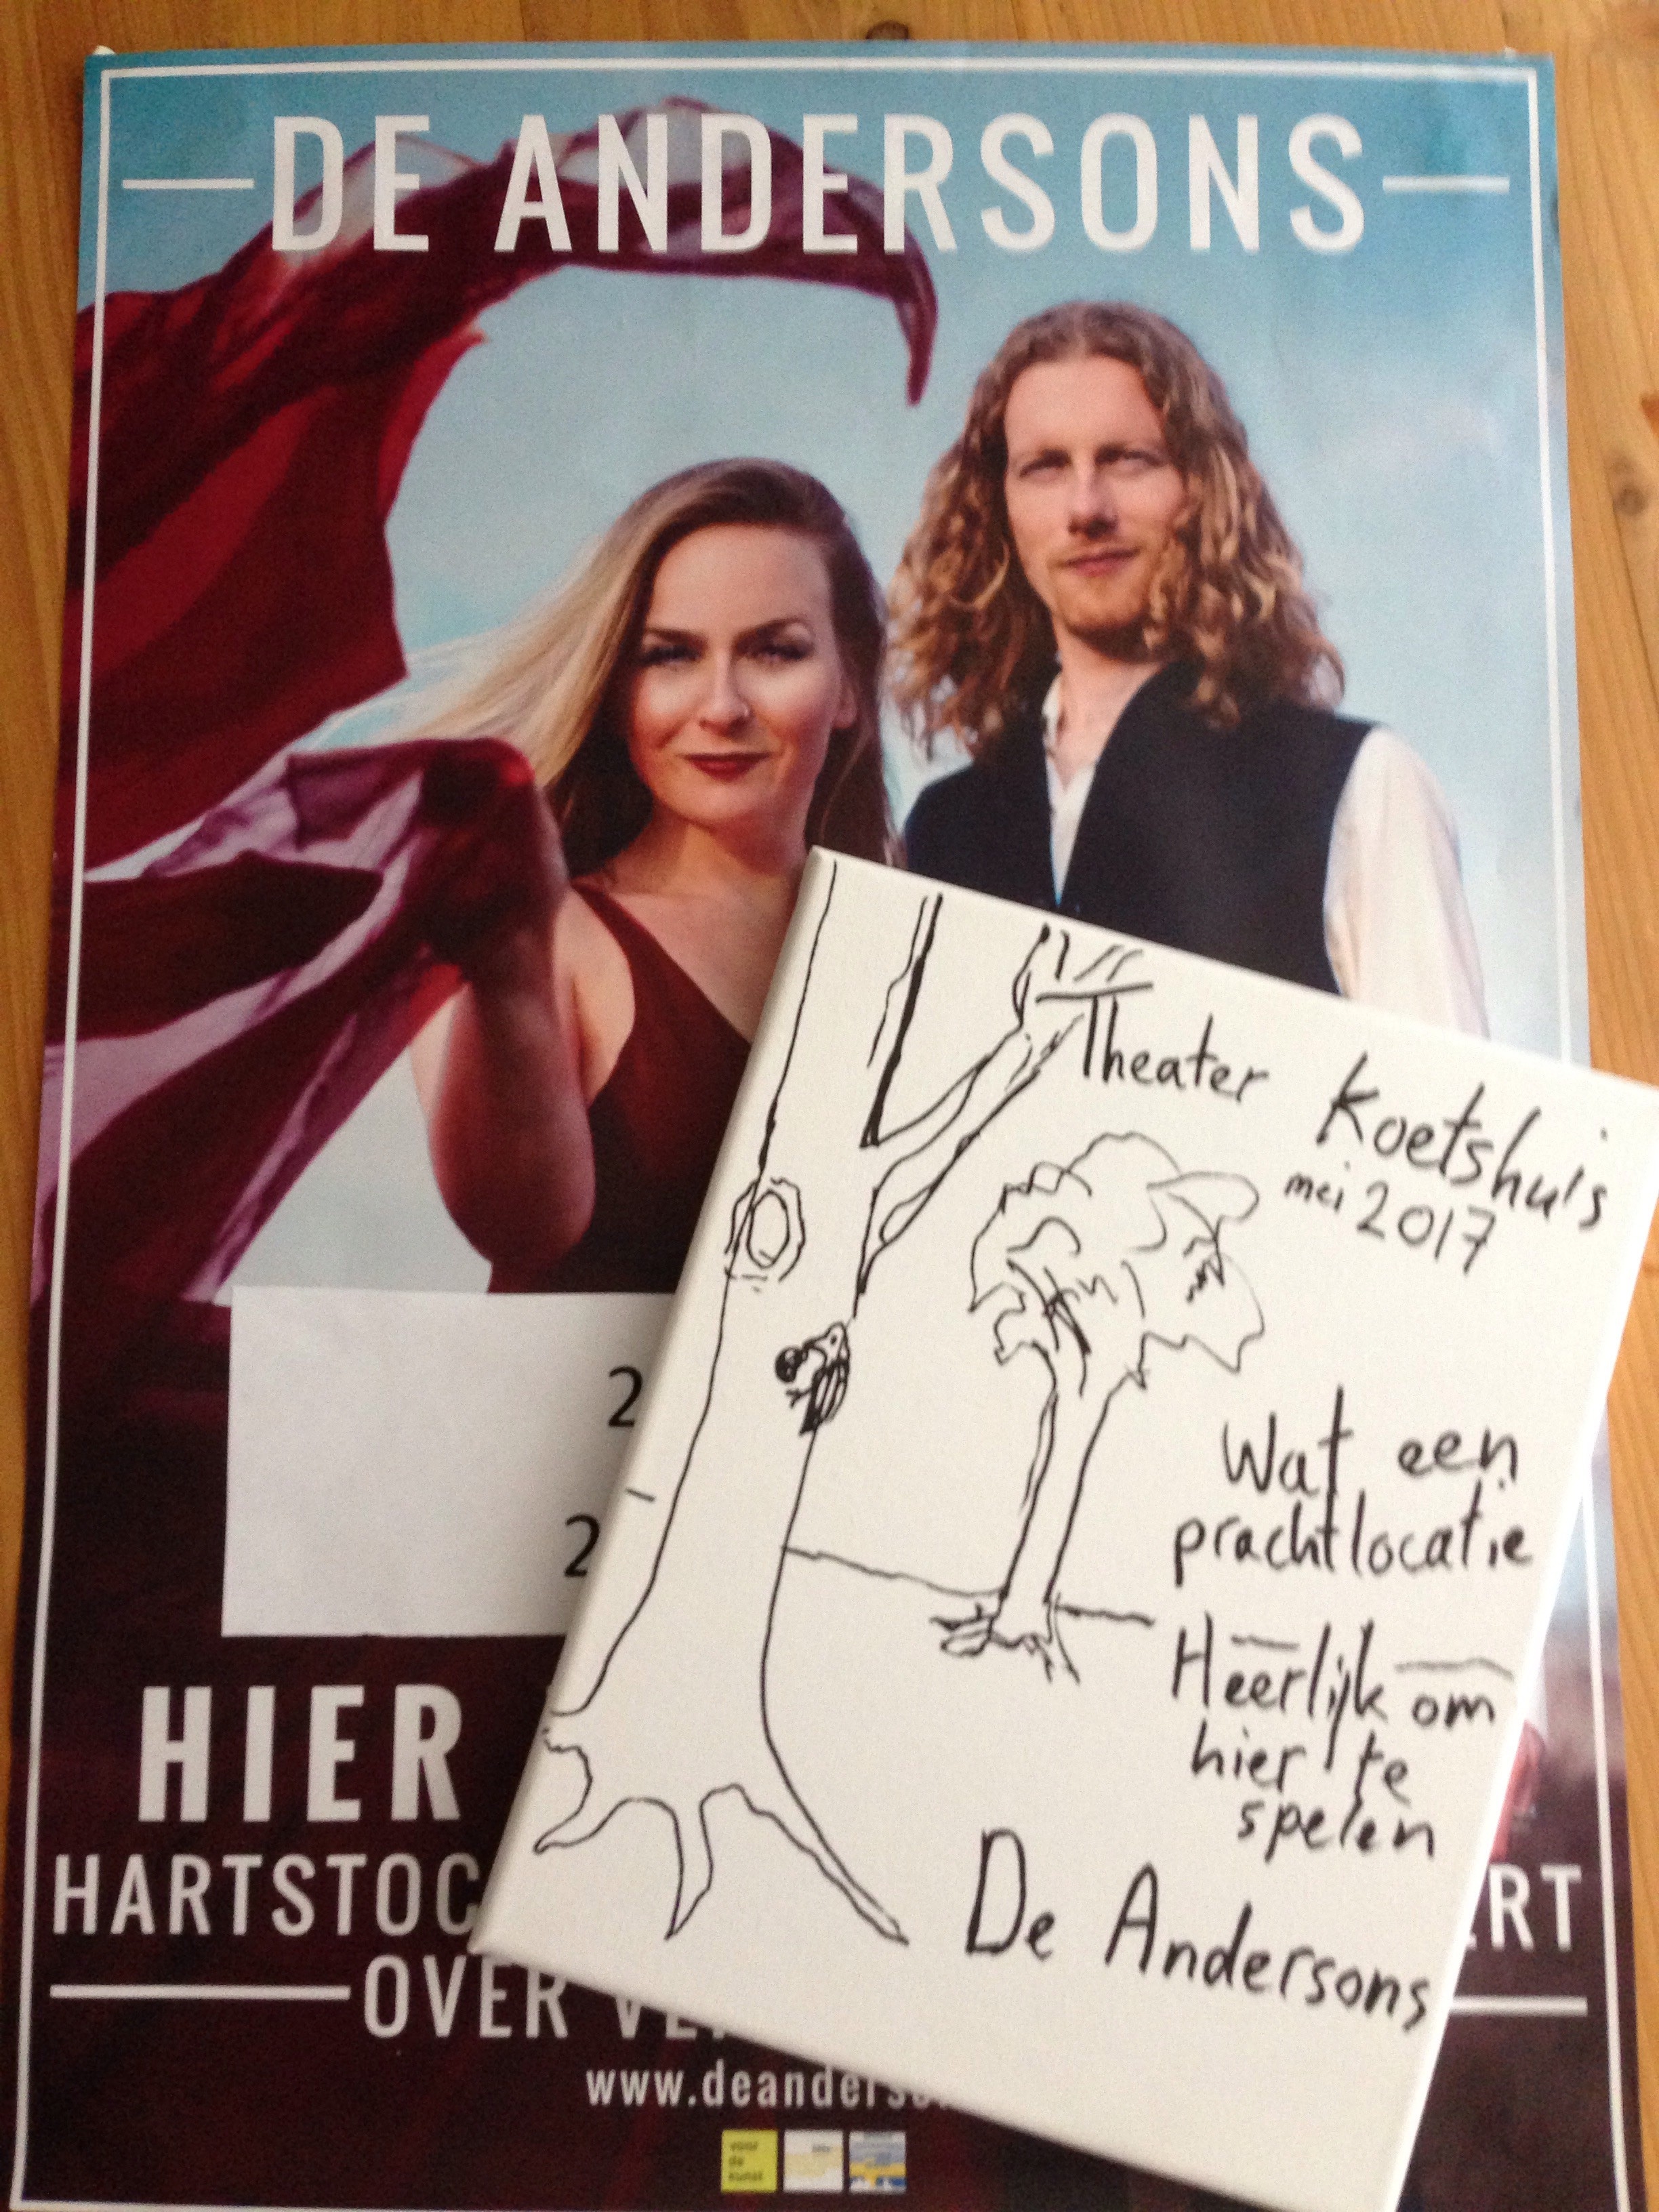 DE ANDERSONS
2
2
HIER
HARTSTOC
ERT
OVER
www.deanderso
voor
de
kunst
Theater Koetshuis
mei 2017
Wat een
prachtlocatie
Heerlijk om
hier te
spelen
De Andersons